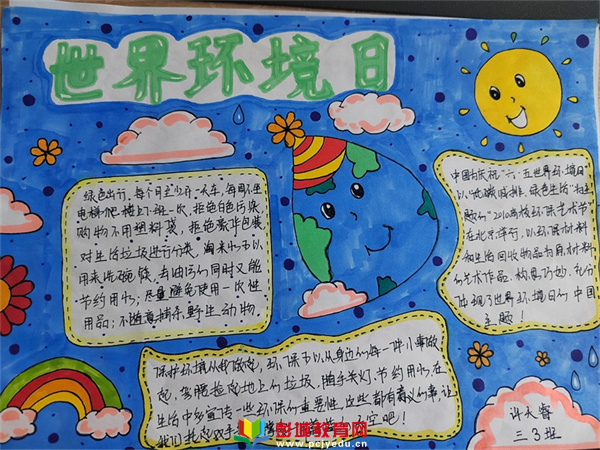 世界环境日
绿色出行,每个月至少开一天车,每周不坐
电梯爬楼上下班一次,拒绝白色污染,
购物不用塑料袋,拒绝豪华包装
对生活垃圾进行分类,淘米水可以
用来洗碗筷,去油污的同时又能
节约用水;尽量避免使用一次性
用品;不随意捕杀野生动物.
中国为庆祝“六·五世界环境日
以“低碳减排,绿色生活”为主
题的“2010高校环保艺术节
在北京举行,以环保材料
和生活回收物品为原材料
的艺术作品,构思巧妙,充分
体现了世界环境日的中国
主题!
保护环境从我做起,环保可以从身边的每一件小事做
起,弯腰捡起地上的垃圾,随手关灯、节约用水,在
生活中多宣传一些环保的重要性,这些都有意义的事,让
我们
吧!
许
三3班
彭城教育网
www.pcjyedu.cn